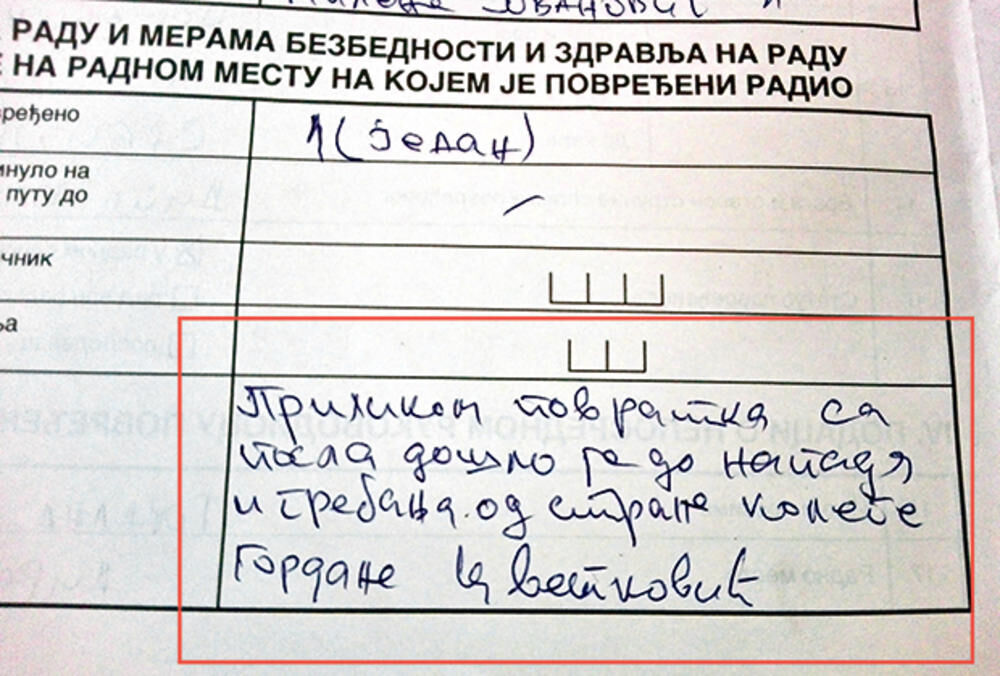 РАДУ И МЕРАМА БЕЗБЕДНОСТИ И ЗДРАВЉА НА РАДУ
НА РАДНОМ МЕСТУ НА КОЈЕМ ЈЕ ПОВРЕЂЕНИ РАДИО
ређено
1 (један)
нуло на
путу до
–
чник
ња
Приликом повратка са
посла дошло је до напада
и гребања од стране колеге
Гордане Цветковић